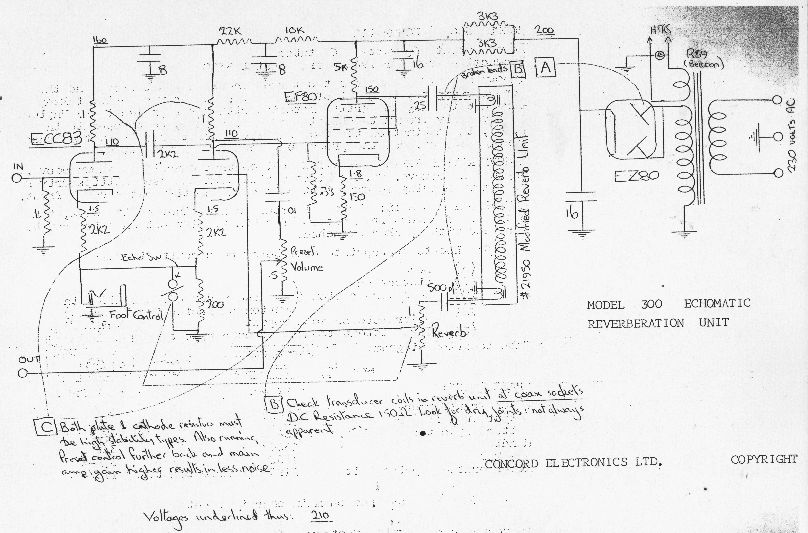 3K3
22K
10K
160
200
HTRS
3K3
8
8
16
5K
B
A
(Beacon)
EF80
150
25
ECC83
110
110
2K2
IN
EZ80
230 VOLTS AC
#21950 Modified Reverb Unit
1.8
150
1.5
1.5
.01
2K2
2K2
Preset
Volume
.5
16
Echo Sw
500pf
MODEL 300 ECHOMATIC
REVERBERATION UNIT
Foot Control
Reverb
OUT
B Check transducer coils in reverb unit at coax sockets
D.C. Resistance 150Ω Look for dry joints: not always
apparent
C Both plate & cathode resistors must
be high stability types. Also running
Preset control further back and main
amp gain higher results in less noise
CONCORD ELECTRONICS LTD. COPYRIGHT
Voltages underlined thus: 210